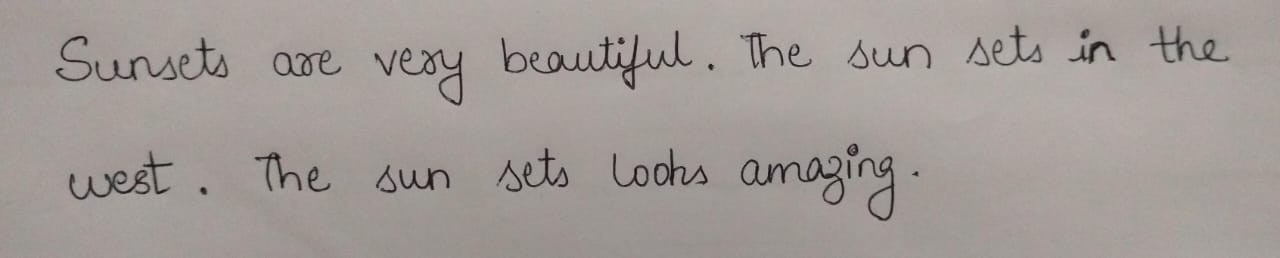 Sunsets are very beautiful. The sun sets in the
west. The sun sets looks amazing.